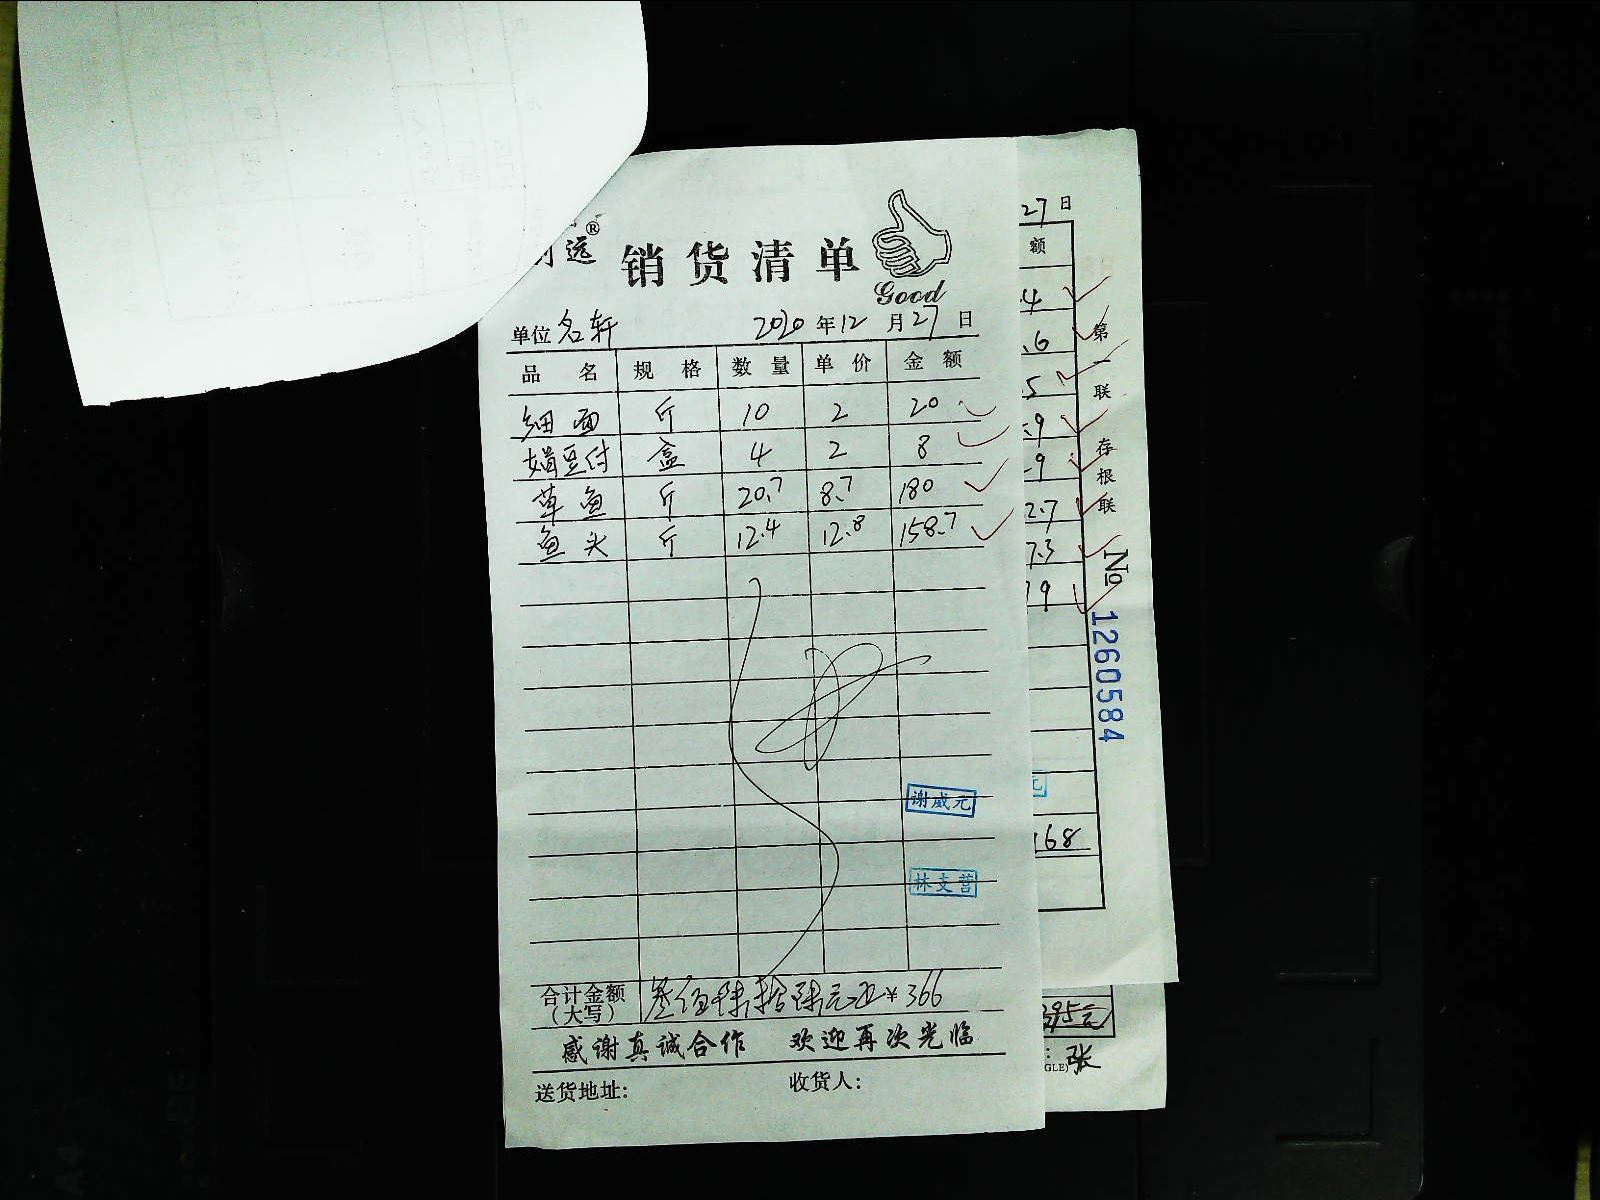 远®
销货清单
Good
单位 名轩 2020 年 12 月 27 日
品名 规格 数量 单价 金额
细面 斤 10 2 20
娟豆付 盒 4 2 8
草鱼 斤 20.7 8.7 180
鱼头 斤 12.4 12.8 158.7
谢威元
林支营
合计金额 叁佰陆拾陆元正 ¥366
(大写)
感谢真诚合作 欢迎再次光临
送货地址: 收货人:
27 日
额
.4
.6
.5
.9
.9
2.7
7.3
19
元
168
第一联 存根联
№ 1260584
395元
GLE) 张